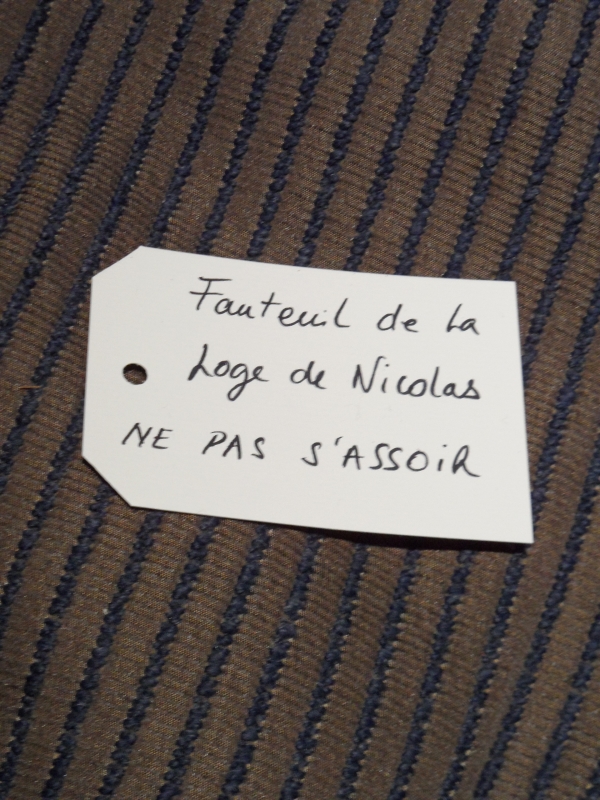 Fauteuil de la
Loge de Nicolas
NE PAS S'ASSOIR